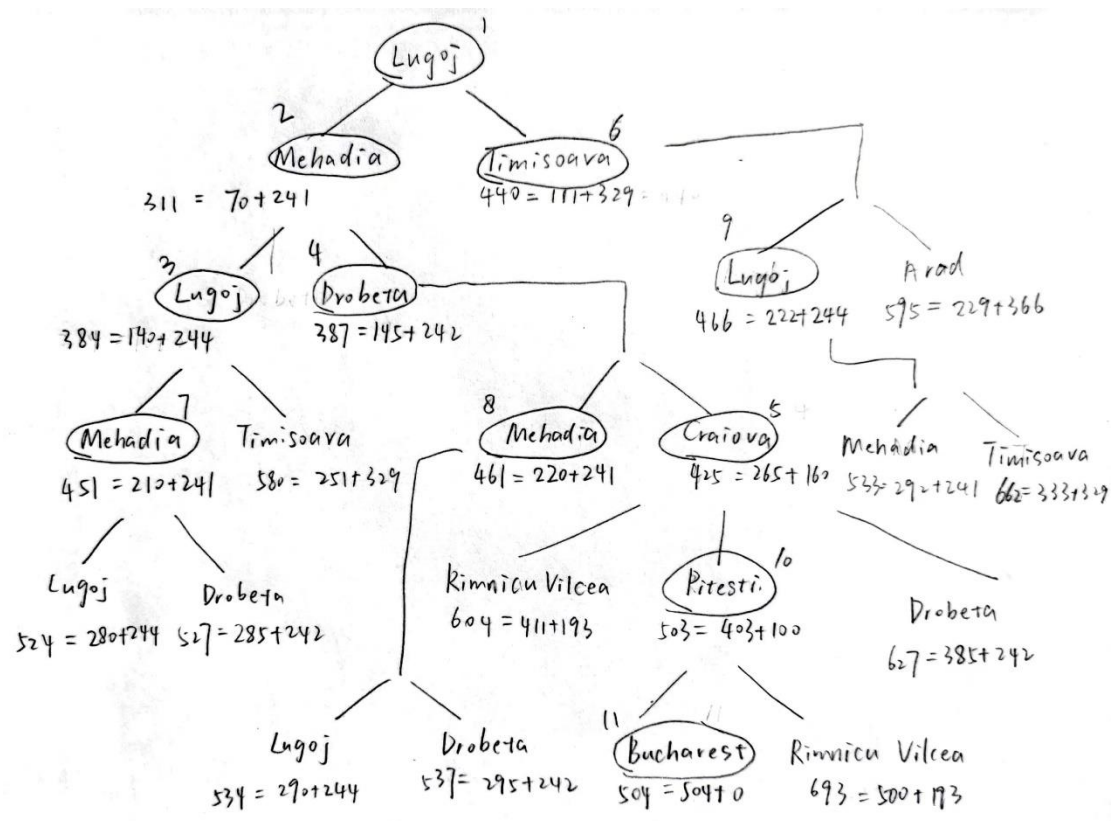 1
Lugoj
2
Mehadia
311 = 70+241
6
Timisoava
440 = 111+329
3
Lugoj
384 = 140+244
4
Drobeta
387 = 145+242
9
Lugoj
466 = 222+244
Arad
595 = 229+366
7
Mehadia
451 = 210+241
Timisoava
580 = 251+329
8
Mehadia
461 = 220+241
5
Craiova
425 = 265+160
Mehadia
533 = 292+241
Timisoava
662 = 333+329
Lugoj
524 = 280+244
Drobeta
527 = 285+242
Rimnicu Vilcea
604 = 411+193
10
Pitesti.
503 = 403+100
Drobeta
627 = 385+242
Lugoj
534 = 290+244
Drobeta
537 = 295+242
11
Bucharest
504 = 504+0
Rimnicu Vilcea
693 = 500+193